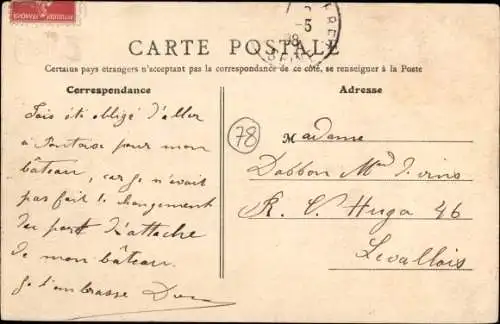 CARTE POSTALE
Certains pays étrangers n'acceptant pas la correspondance de ce côté, se renseigner à la Poste
Correspondance
Adresse
J'ais été obligé d'aller
à Pontoise pour mon
bâteau, car je n'avait
pas fait le changement
du port d'attache
de mon bâteau
Je t'embrasse
78
Madame
Dabbon Md Vins
R. V. Hugo 46
Levallois